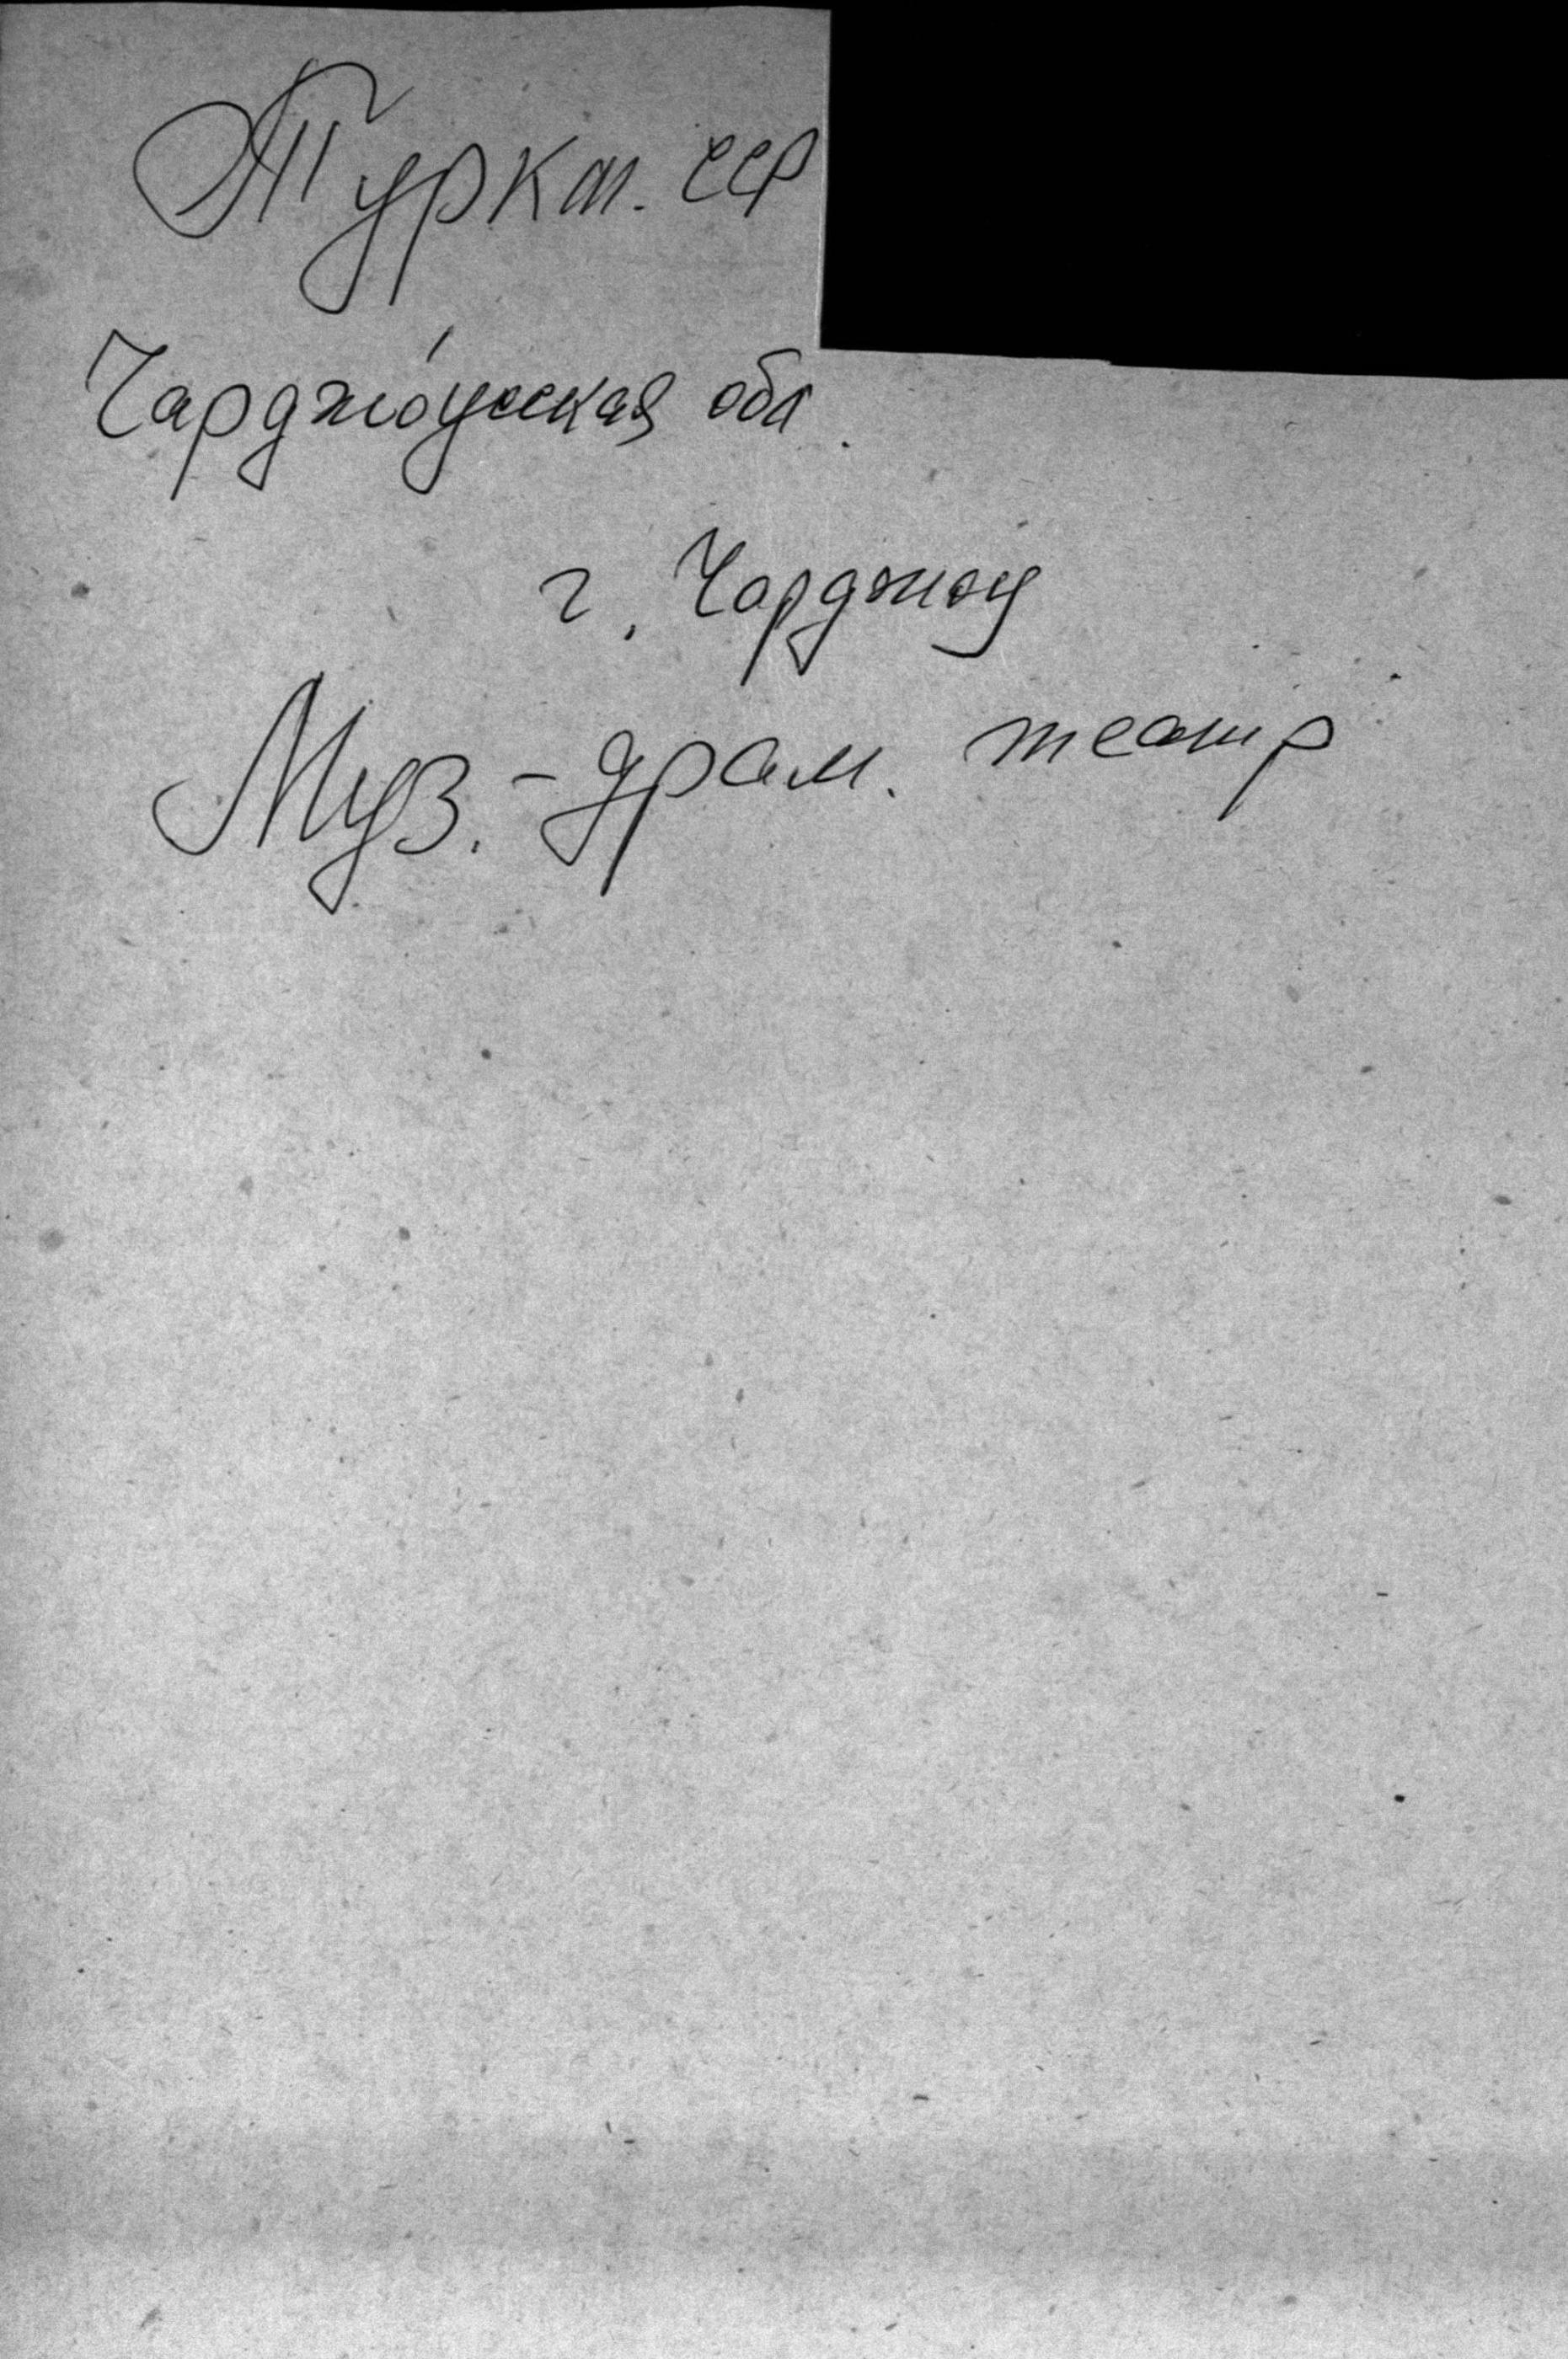 Туркм. ССР
Чарджо́уская обл.
г. Чарджоу
Муз.-драм. театр